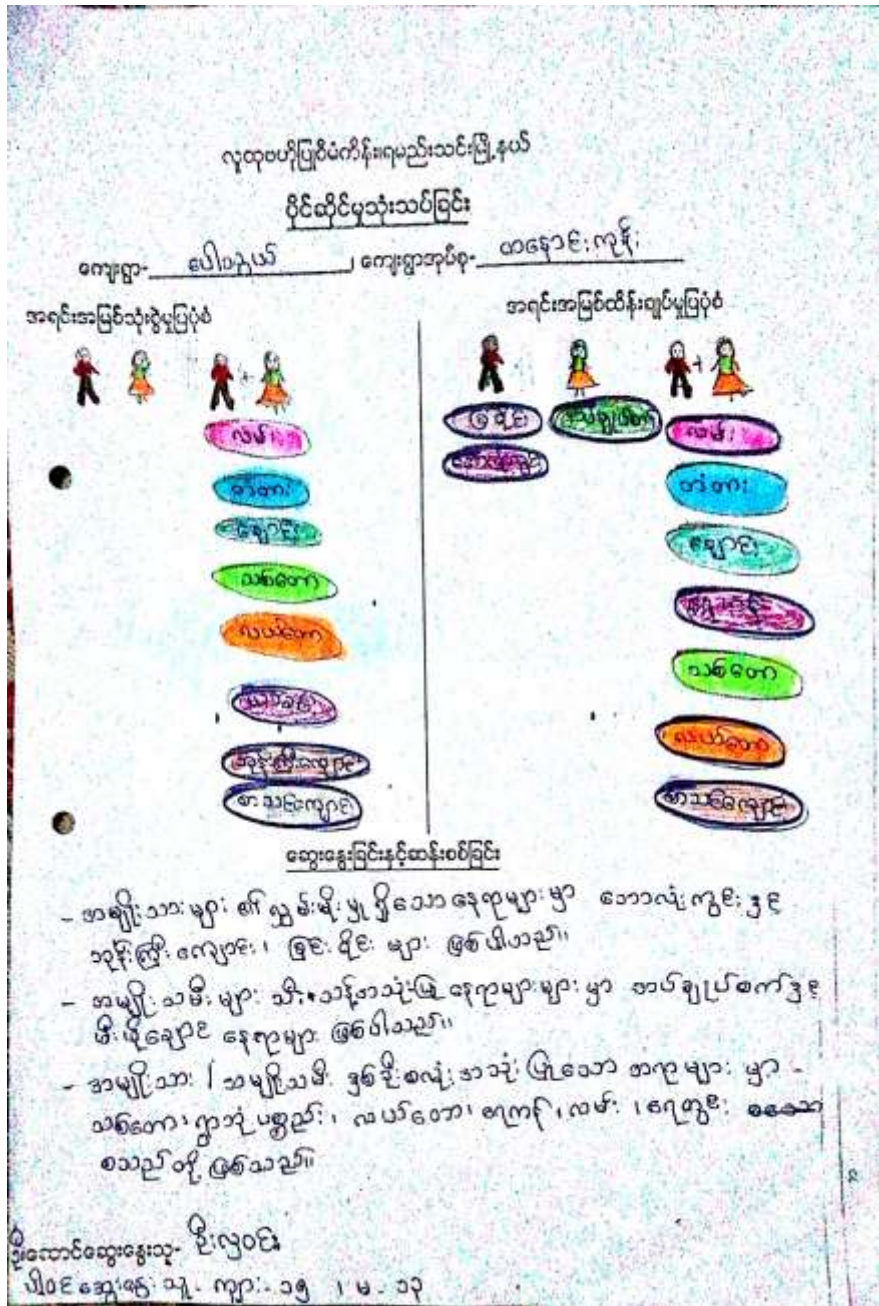 လူထုဗဟိုပြုစီမံကိန်း၊ ရမည်းသင်းမြို့နယ်
ပိုင်ဆိုင်မှုသုံးသပ်ခြင်း
ကျေးရွာ- ပေါ်ပင်္ကယ် ၊ ကျေးရွာအုပ်စု- တနောင်းကုန်း
အရင်းအမြစ်သုံးစွဲမှုပြပုံစံ
လမ်း
တံတား
ချောင်း
သစ်တော
လယ်တော
ဘုန်းကြီးကျောင်း
စာသင်ကျောင်း
အရင်းအမြစ်ထိန်းချုပ်မှုပြပုံစံ
လမ်း
တံတား
ချောင်း
သစ်တော
လယ်တော
စာသင်ကျောင်း
ဆွေးနွေးခြင်းနှင့်ဆန်းစစ်ခြင်း
- အမျိုးသားများ ၏ လွှမ်းမိုးမှု ရှိသော နေရာများမှာ ဘောလုံးကွင်းနှင့်
ဘုန်းကြီးကျောင်း၊ ခြင်းဝိုင်း များ ဖြစ်ပါသည်။
- အမျိုးသမီးများ သီးသန့်အသုံးပြု နေရာများများမှာ အပ်ချုပ်စက်နှင့်
မီးဖိုချောင် နေရာများ ဖြစ်ပါသည်။
- အမျိုးသား / အမျိုးသမီး နှစ်ဦးစလုံး အသုံးပြုသော အရာများ မှာ -
သစ်တော၊ ရွာဘုံပစ္စည်း၊ လယ်တော၊ ရေကန်၊ လမ်း၊ ရေတွင်း
စသည်တို့ ဖြစ်သည်။
ဦးဆောင်ဆွေးနွေးသူ- ဦးလှဝင်း
ပါဝင်ဆွေးနွေးသူ - ကျား- ၁၅ ၊ မ - ၁၃